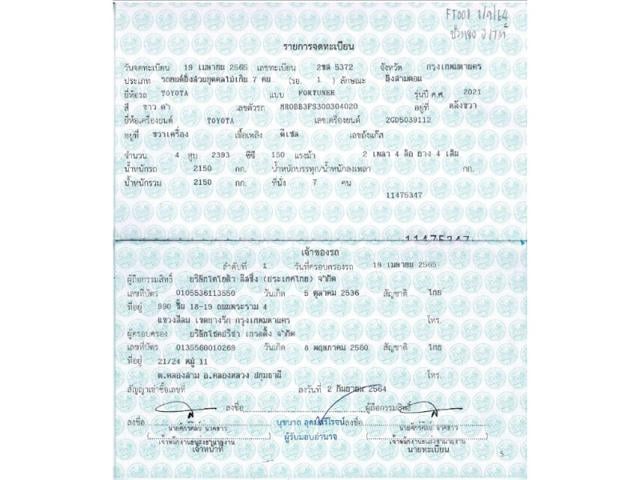 FT001 1/9/64
รายการจดทะเบียน
วันจดทะเบียน 19 เมษายน 2565 เลขทะเบียน 2ขส 5372 จังหวัด กรุงเทพมหานคร
ประเภท รถยนต์นั่งส่วนบุคคลไม่เกิน 7 คน (รย. 1 ) ลักษณะ นั่งสามตอน
ยี่ห้อรถ TOYOTA แบบ FORTUNER รุ่นปี ค.ศ. 2021
สี ขาว ดำ เลขตัวรถ MR0BB3FS300304020 อยู่ที่ คัสซีขวา
ยี่ห้อเครื่องยนต์ TOYOTA เลขเครื่องยนต์ 2GD5039112
อยู่ที่ ขวาเครื่อง เชื้อเพลิง ดีเซล เลขถังแก๊ส
จำนวน 4 สูบ 2393 ซีซี 150 แรงม้า 2 เพลา 4 ล้อ ยาง 4 เส้น
น้ำหนักรถ 2150 กก. น้ำหนักบรรทุก/น้ำหนักลงเพลา กก.
น้ำหนักรวม 2150 กก. ที่นั่ง 7 คน
11475347
11475347
เจ้าของรถ
ลำดับที่ 1 วันที่ครอบครองรถ 19 เมษายน 2565
ผู้ถือกรรมสิทธิ์ บริษัทโตโยต้า ลีสซิ่ง (ประเทศไทย) จำกัด
เลขที่บัตร 0105536113550 วันเกิด 5 ตุลาคม 2536 สัญชาติ ไทย
ที่อยู่ 990 ชั้น 18-19 ถนนพระราม 4
แขวงสีลม เขตบางรัก กรุงเทพมหานคร โทร.
ผู้ครอบครอง บริษัทโชคอรีชา เทรดดิ้ง จำกัด
เลขที่บัตร 0135560010269 วันเกิด 8 พฤษภาคม 2560 สัญชาติ ไทย
ที่อยู่ 21/24 หมู่ 11
ต.คลองสาม อ.คลองหลวง ปทุมธานี โทร.
สัญญาเช่าซื้อเลขที่ ลงวันที่ 2 กันยายน 2564
ลงชื่อ ผู้ถือกรรมสิทธิ์
ลงชื่อ นุชบาถ ลงชื่อ
ผู้รับมอบอำนาจ
เจ้าหน้าที่ นายทะเบียน
5